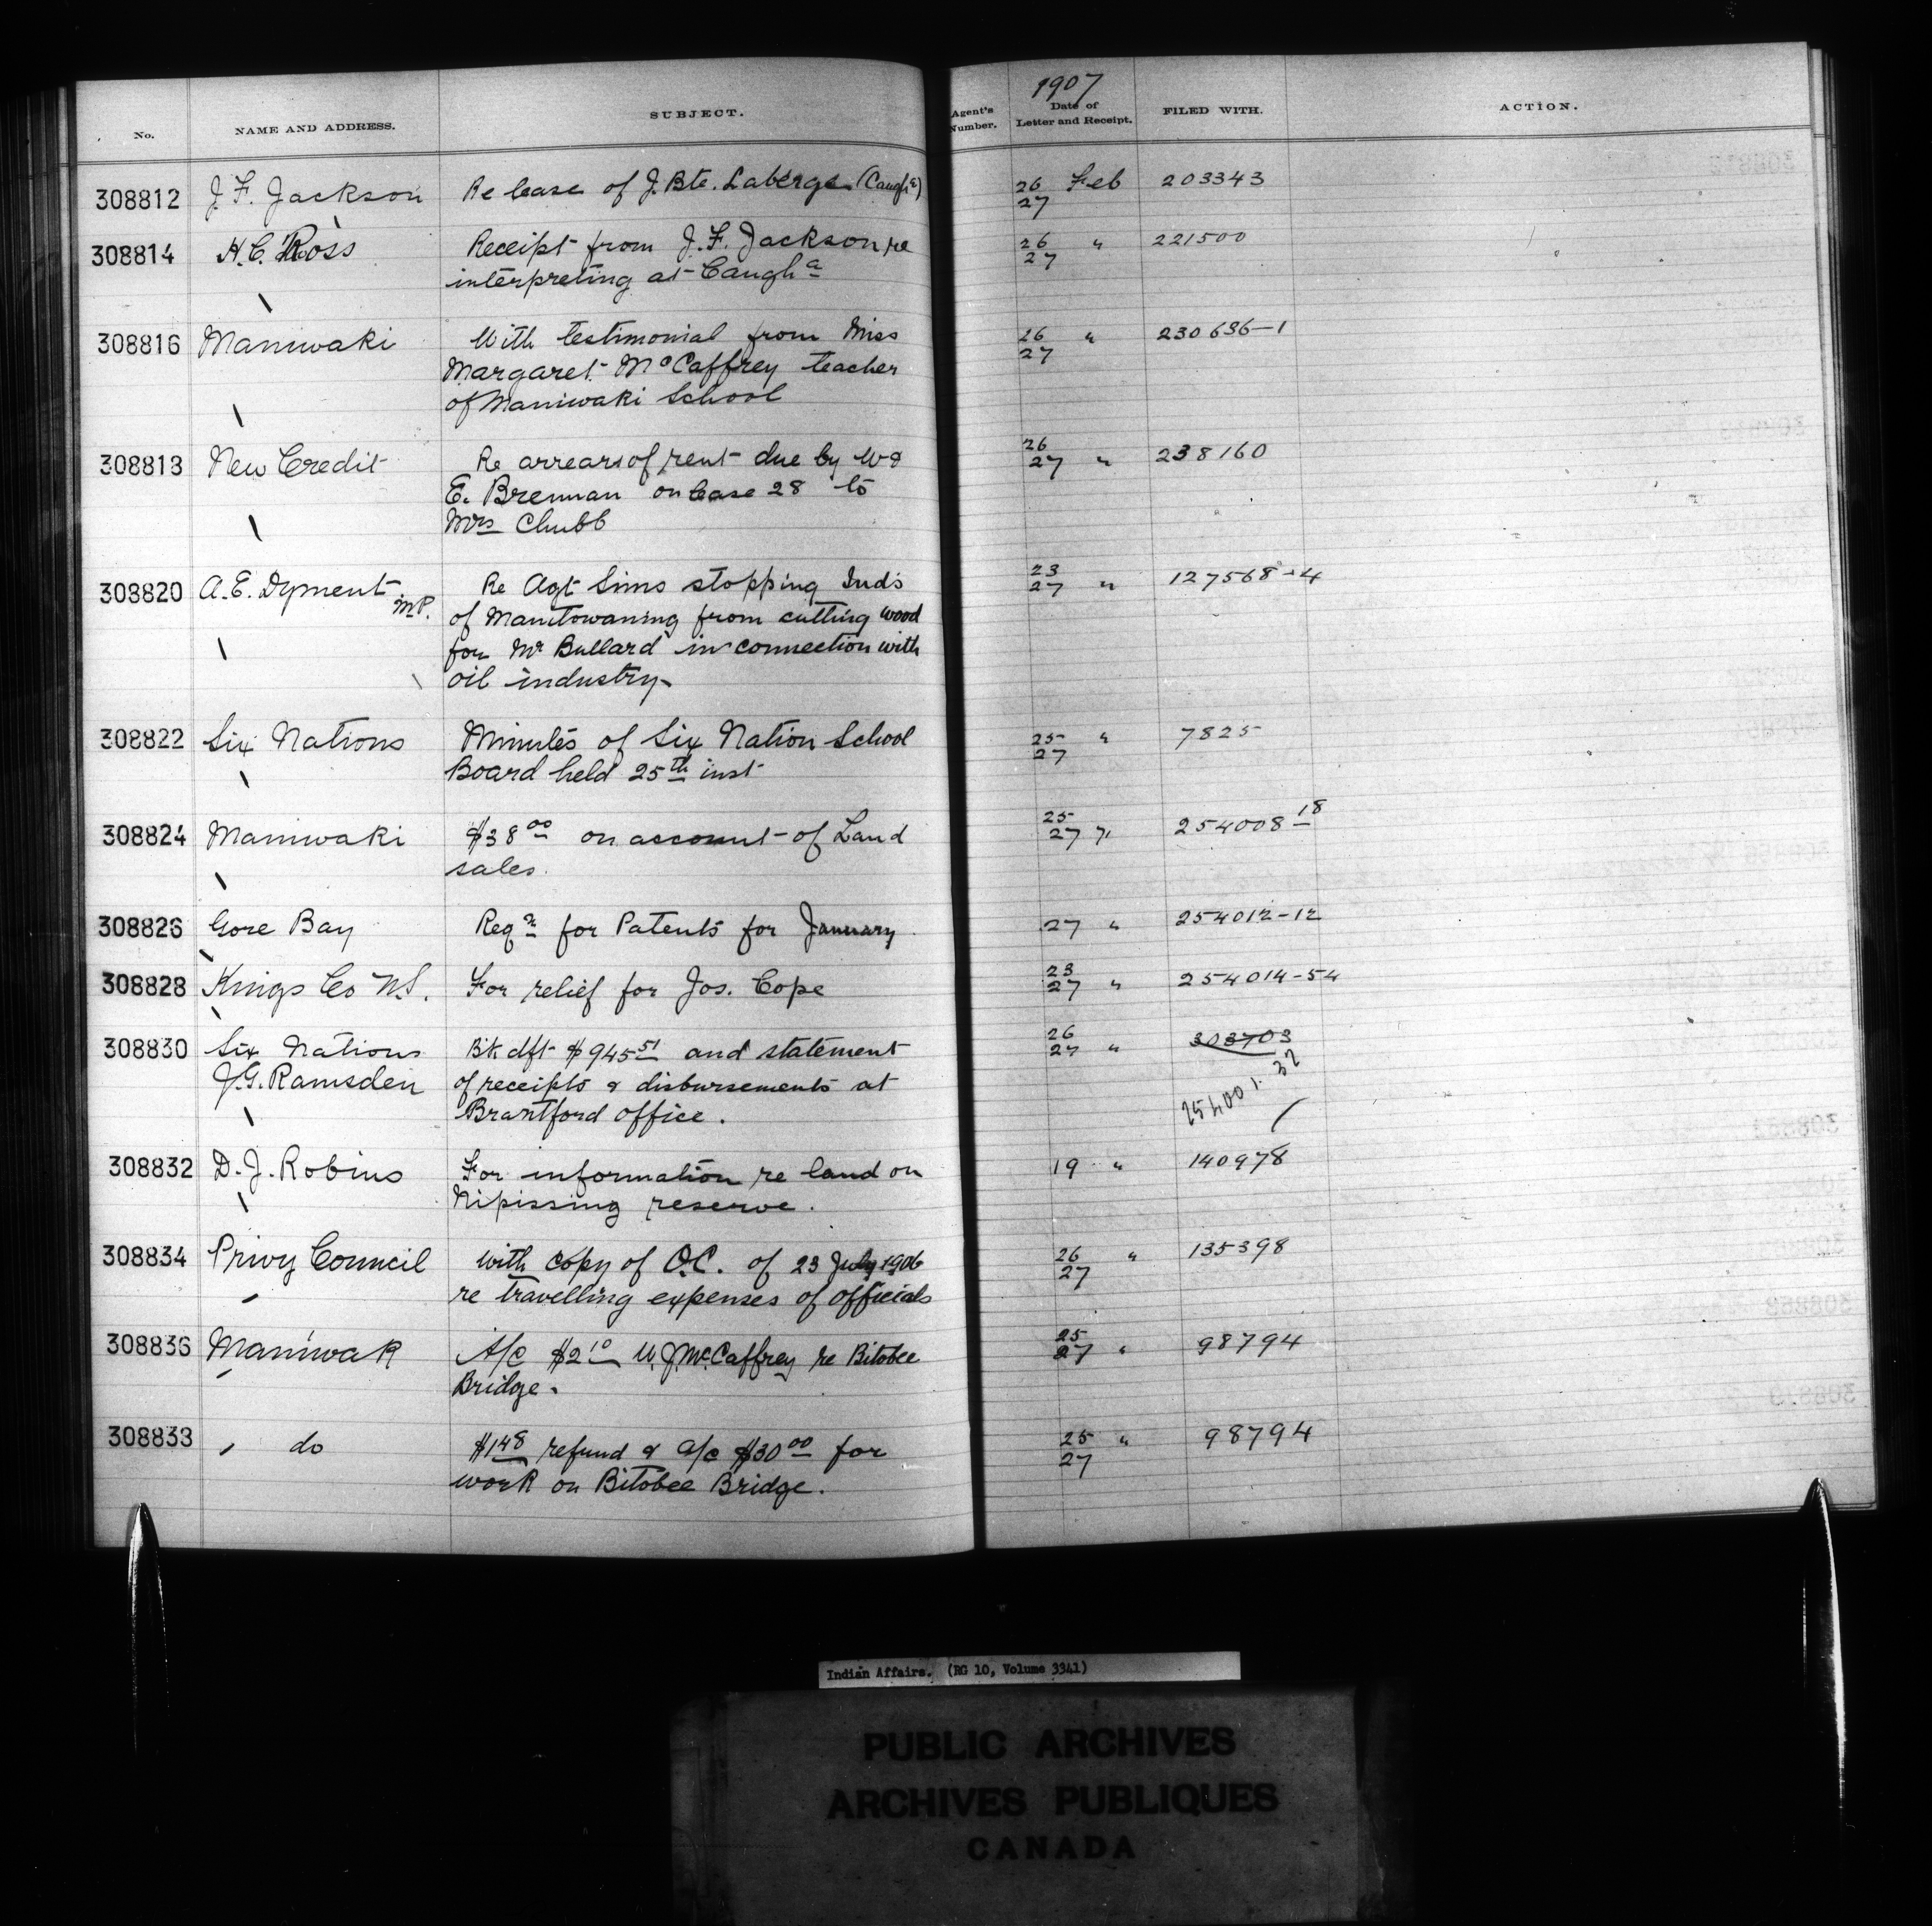 1907
No. NAME AND ADDRESS. SUBJECT. Agent's Number. Date of Letter and Receipt. FILED WITH. ACTION.
308812 J. F. Jackson Re lease of J. Bte. Laberge (Caugha) 26 Feb 203343
27
308814 H. C. Ross Receipt from J. F. Jackson re 26 " 221500
interpreting at Caugha 27
308816 Maniwaki With testimonial from Miss 26 " 230636-1
Margaret McCaffrey teacher 27
of Maniwaki School
308818 New Credit Re arrears of rent due by W & 26
27 " 238160
E. Brennan on lease 28 to
Mrs Chubb
308820 A. E. Dyment M.P. Re Agt Sims stopping Inds 23
27 " 127568-4
of Manitowaning from cutting wood
for Mr Bullard in connection with
oil industry
308822 Six Nations Minutes of Six Nation School 25 " 7825
Board held 25th inst 27
308824 Maniwaki $38 00 on account of Land 25
27 " 254008-18
sales.
308826 Gore Bay Reqn for Patents for January 27 " 254012-12
308828 Kings Co N.S. For relief for Jos. Cope 23
27 " 254014-54
308830 Six Nations Bk dft $945 51 and statement 26
27 " 303703
J. G. Ramsden of receipts & disbursements at 254001-32
Brantford office.
308832 D. J. Robins For information re land on 19 " 140978
Nipissing reserve.
308834 Privy Council With copy of O.C. of 23 July 1906 26 " 135398
re travelling expenses of officials 27
308836 Maniwak A/c $2 10 W. J. McCaffrey re Bitobee 25
27 " 98794
Bridge.
308838 do $1 48 refund & a/c $30 00 for 25 " 98794
work on Bitobee Bridge. 27
Indian Affairs. (RG 10, Volume 3341)
PUBLIC ARCHIVES
ARCHIVES PUBLIQUES
CANADA